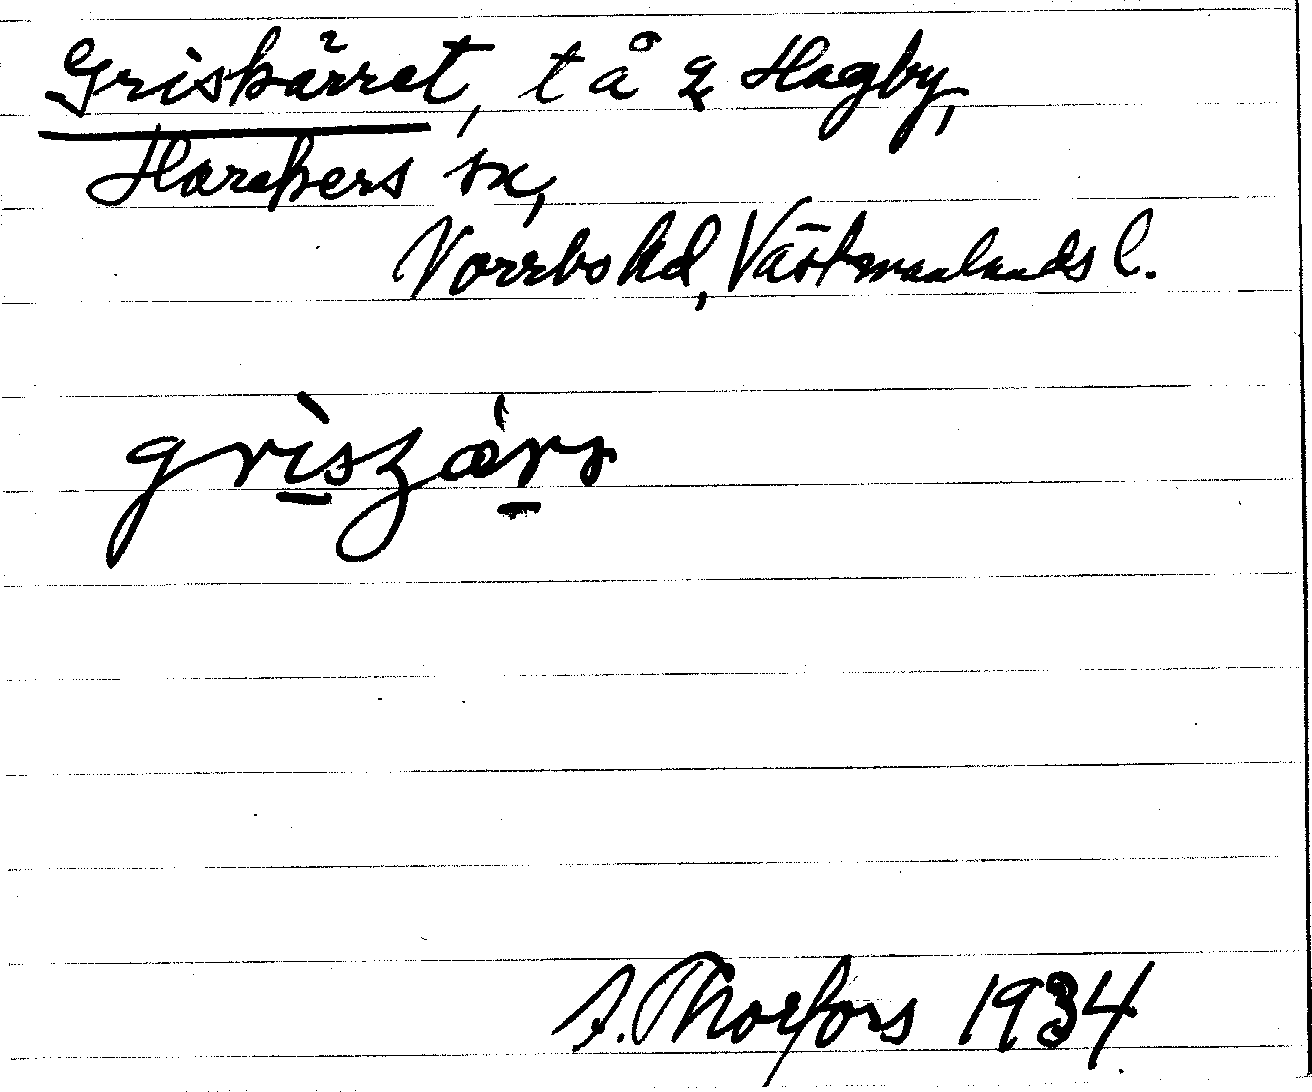 Griskärret, t å Hagby,
Harakers sn,
Norrbo hd, Västmanlands l.
S. Thorfors 1934